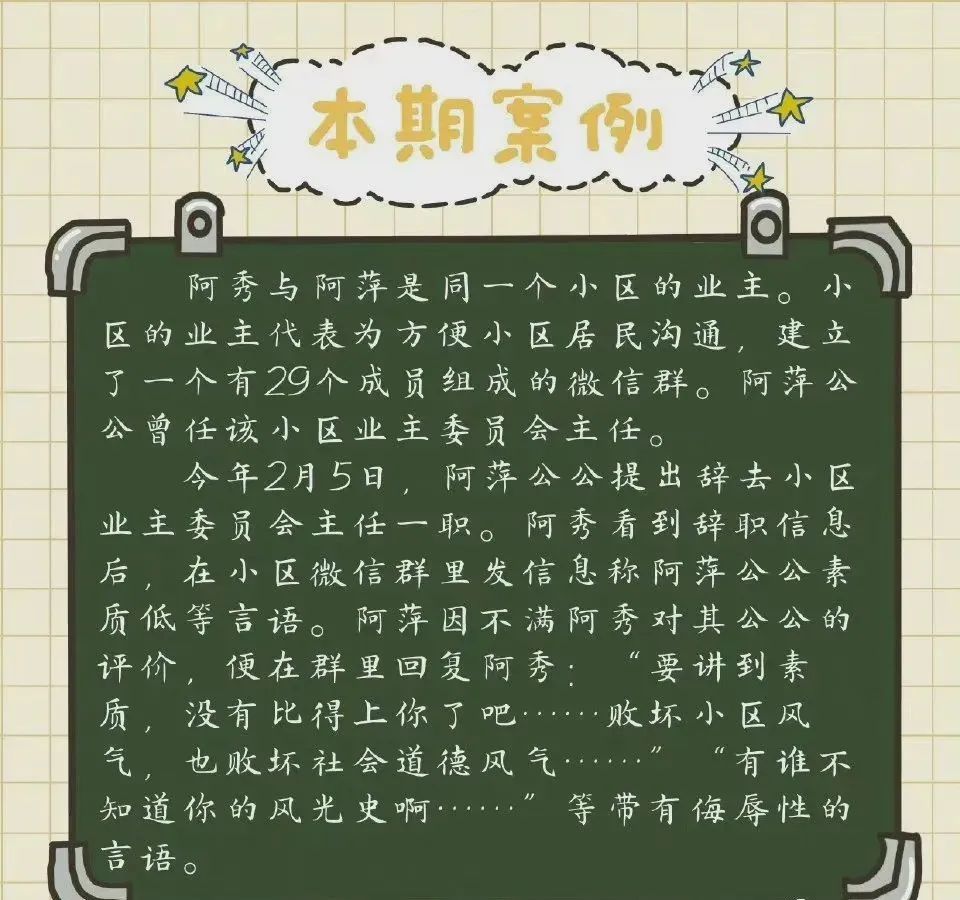 本期案例
阿秀与阿萍是同一个小区的业主。小
区的业主代表为方便小区居民沟通，建立
了一个有29个成员组成的微信群。阿萍公
公曾任该小区业主委员会主任。
今年2月5日，阿萍公公提出辞去小区
业主委员会主任一职。阿秀看到辞职信息
后，在小区微信群里发信息称阿萍公公素
质低等言语。阿萍因不满阿秀对其公公的
评价，便在群里回复阿秀：“要讲到素
质，没有比得上你了吧……败坏小区风
气，也败坏社会道德风气……”“有谁不
知道你的风光史啊……”等带有侮辱性的
言语。